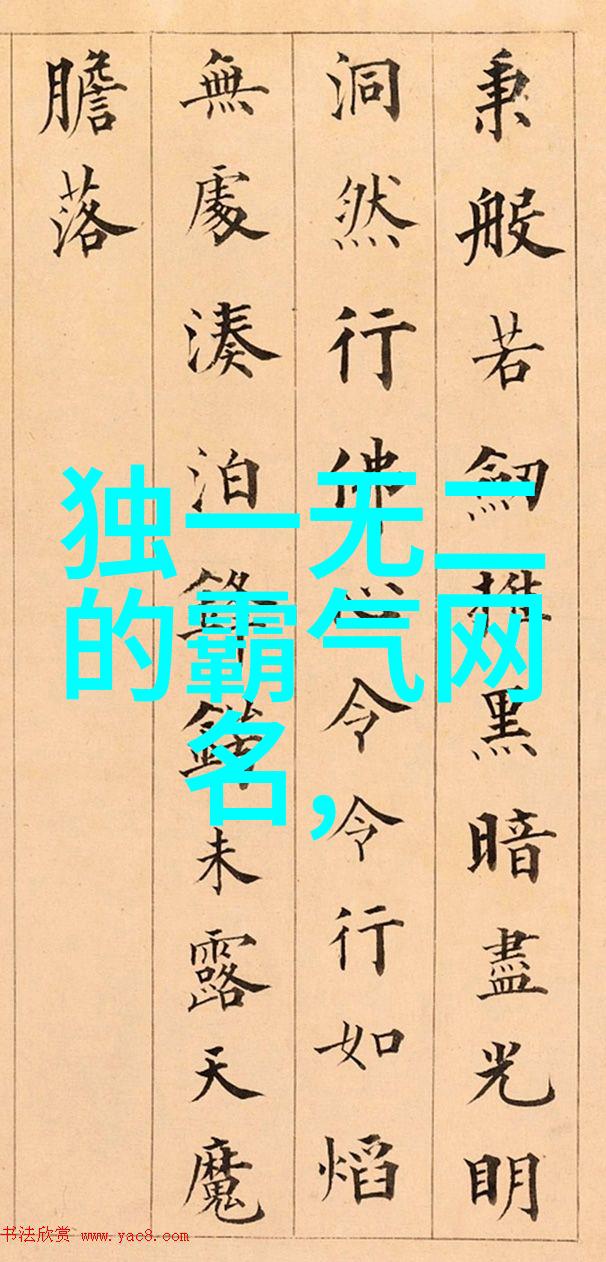 秉般若劒推黑暗盡光明
洞然行佛心令令行如熖
無處湊泊鋒未露天魔
膽落
独一无二
的霸气网
名,
书法欣赏 www.yac8.com